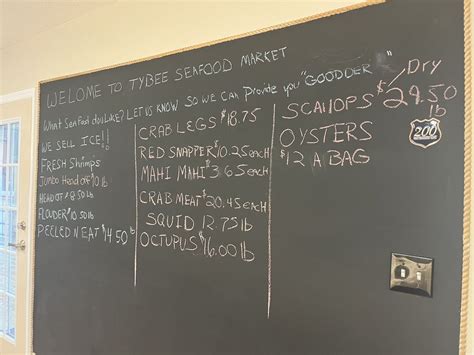 WELCOME TO TYBEE SEAFOOD MARKET
What Seafood do you Like? LET US KNOW SO WE CAN Provide you "GOODDER"
WE SELL ICE!!
FRESH Shrimps
Jumbo Head off $10 lb
HEAD OFF $8.50 lb
FLOUDER $10.50 lb
PEELED N EAT $14.50 lb
CRAB LEGS $18.75
RED SNAPPER $10.25 each
MAHI MAHI $3.65 each
CRAB MEAT $20.45 EACH
SQUID 12.75 lb
OCTUPUS $16.00 lb
Dry
SCAllOPS $29.50 lb
OYSTERS
$12 A BAG
200